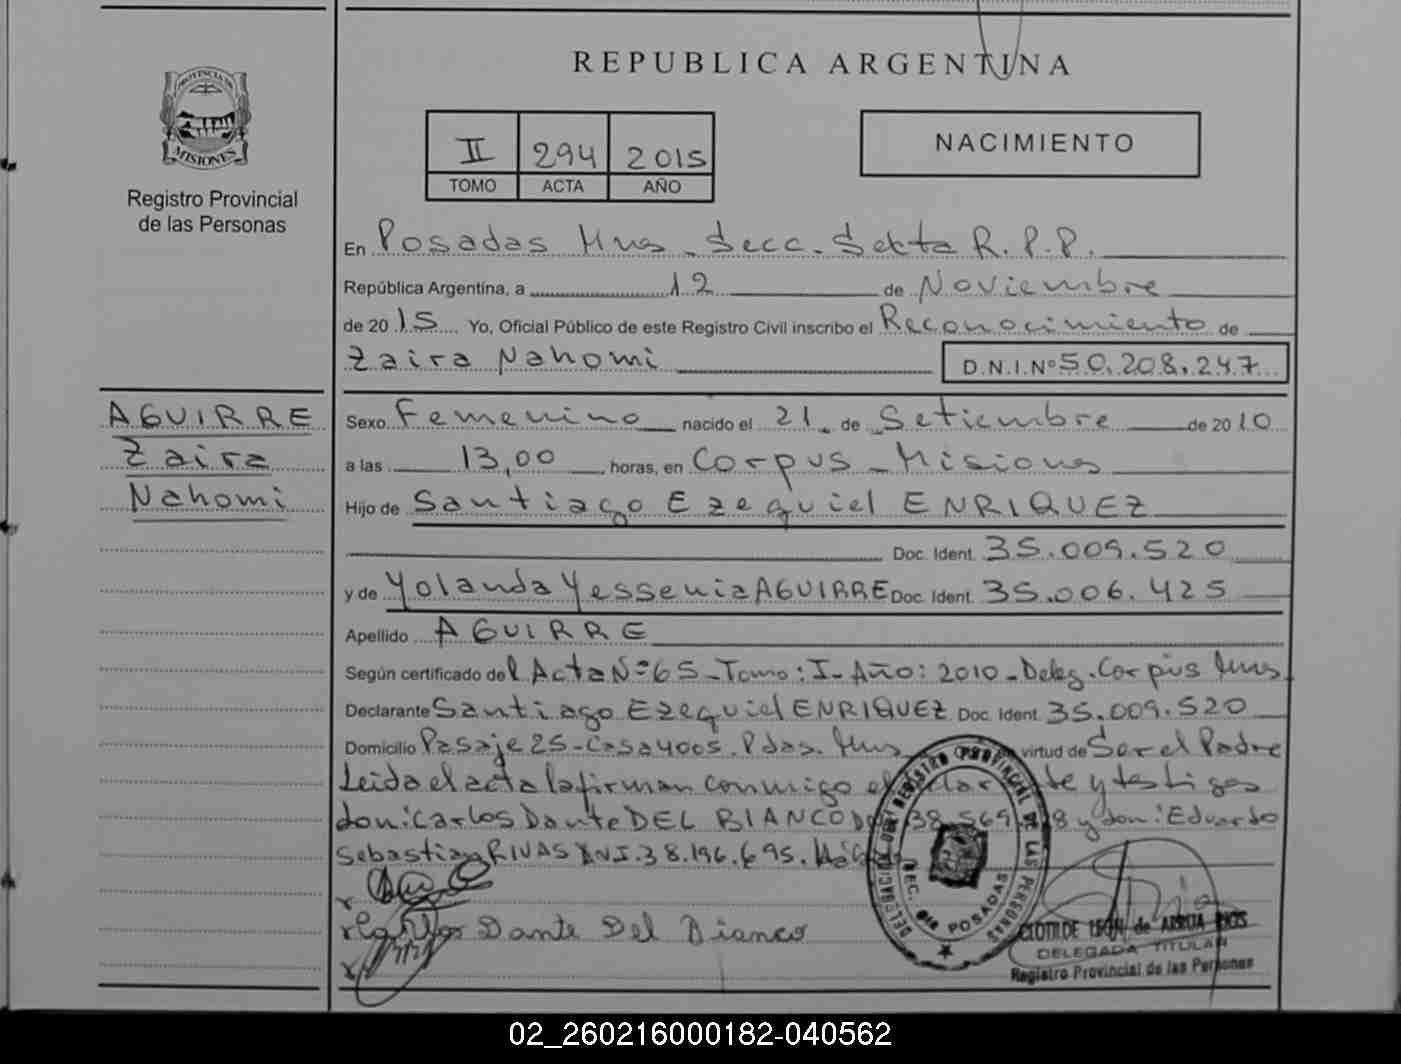 REPUBLICA ARGENTINA
PROVINCIA DE
MISIONES
Registro Provincial
de las Personas
II 294 2015
TOMO ACTA AÑO
NACIMIENTO
En Posadas Mnes - Secc. Sekta R.P.P.
República Argentina, a 12 de Noviembre
de 2015 Yo, Oficial Público de este Registro Civil inscribo el Reconocimiento de
Zaira Nahomi D.N.I.Nº 50.208.247
AGUIRRE
Zaira
Nahomi
Sexo Femenino nacido el 21 de Setiembre de 2010
a las 13,00 horas, en Corpus - Misiones
Hijo de Santiago Ezequiel ENRIQUEZ
Doc. Ident. 35.009.520
y de Yolanda Yessenia AGUIRRE Doc. Ident. 35.006.425
Apellido AGUIRRE
Según certificado del Acta Nº 65 - Tomo: I - Año: 2010 - Deleg. Corpus Mns
Declarante Santiago Ezequiel ENRIQUEZ Doc. Ident. 35.009.520
Domicilio Pasaje 25 - Casa 4005. Pdas. Mns virtud de Ser el Padre
Leida el acta la firman conmigo el y testigos
don: Carlos Dante DEL BIANCO 38.569 8 y don: Eduardo
Sebastian RIVAS DNI. 38.196.695.
Carlos Dante Del Bianco
DELEGACION DEL REGISTRO PROVINCIAL DE LAS PERSONAS
SEC. 6ta POSADAS
CLOTILDE LEON de ARRUA RIOS
DELEGADA TITULAR
Registro Provincial de las Personas
02_260216000182-040562